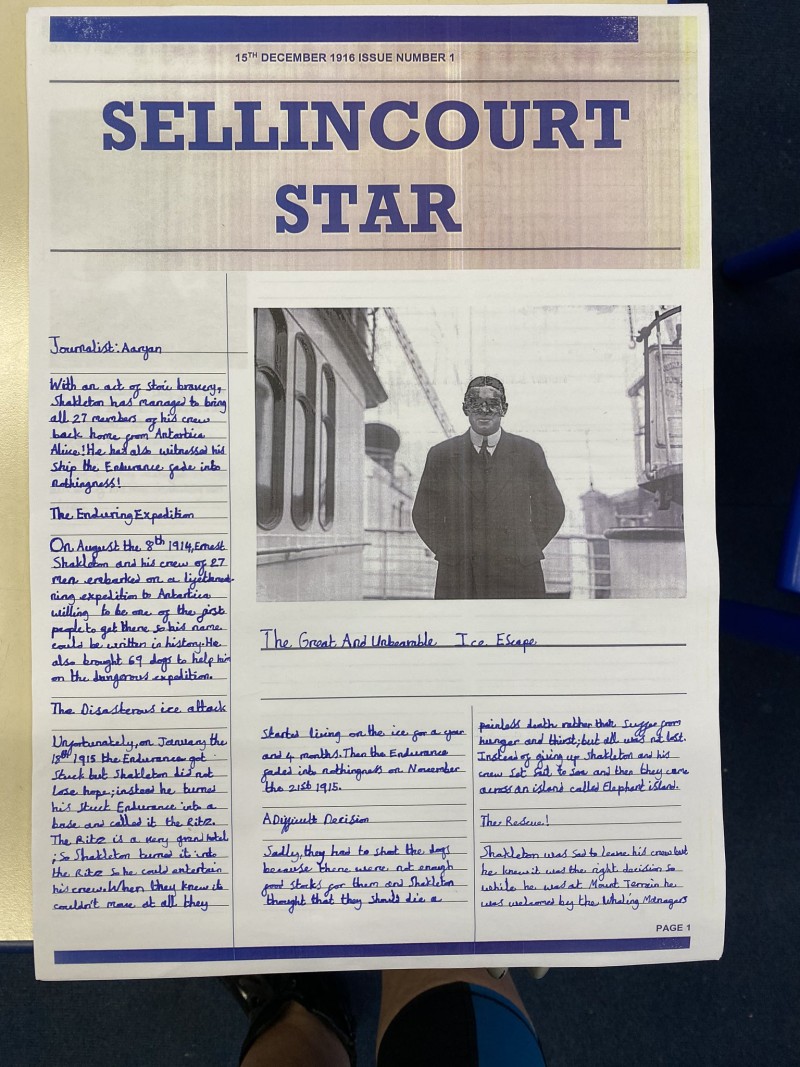 15TH DECEMBER 1916 ISSUE NUMBER 1
SELLINCOURT
STAR
Journalist: Aaryan
With an act of stoic bravery,
Shakleton has managed to bring
all 27 members of his crew
back home from Antartica
Alive! He has also witnessed his
ship the Endurance fade into
nothingness!
The Enduring Expedition
On August the 8th 1914, Ernest
Shakleton and his crew of 27
men embarked on a lifethreat-
ning expedition to Antartica
willing to be one of the first
people to get there so his name
could be written in history. He
also brought 69 dogs to help him
on the dangerous expedition.
The Disasterous ice attack
Unfortunately, on January the
18th 1915 the Endurance got
stuck but Shakleton did not
lose hope; instead he turned
his stuck Endurance into a
base and called it the Ritz.
The Ritz is a very grand hotel
; so Shakleton turned it into
the Ritz so he could entertain
his crew. When they knew it
couldn't move at all they
The Great And Unbearable Ice Escape
Started living on the ice for a year
and 4 months. Then the Endurance
faded into nothingness on November
the 21st 1915.
A Difficult Decision
Sadly, they had to shoot the dogs
because there were not enough
food stocks for them and Shakleton
thought that they should die a
painless death rather that suffer from
hunger and thirst; but all was not lost.
Instead of giving up Shakleton and his
crew set sail to sea and then they came
across an island called Elephant island.
The Rescue!
Shakleton was sad to leave his crew but
he knew it was the right decision so
while he was at Mount Terrain he
was welcomed by the Whaling Managers
PAGE 1